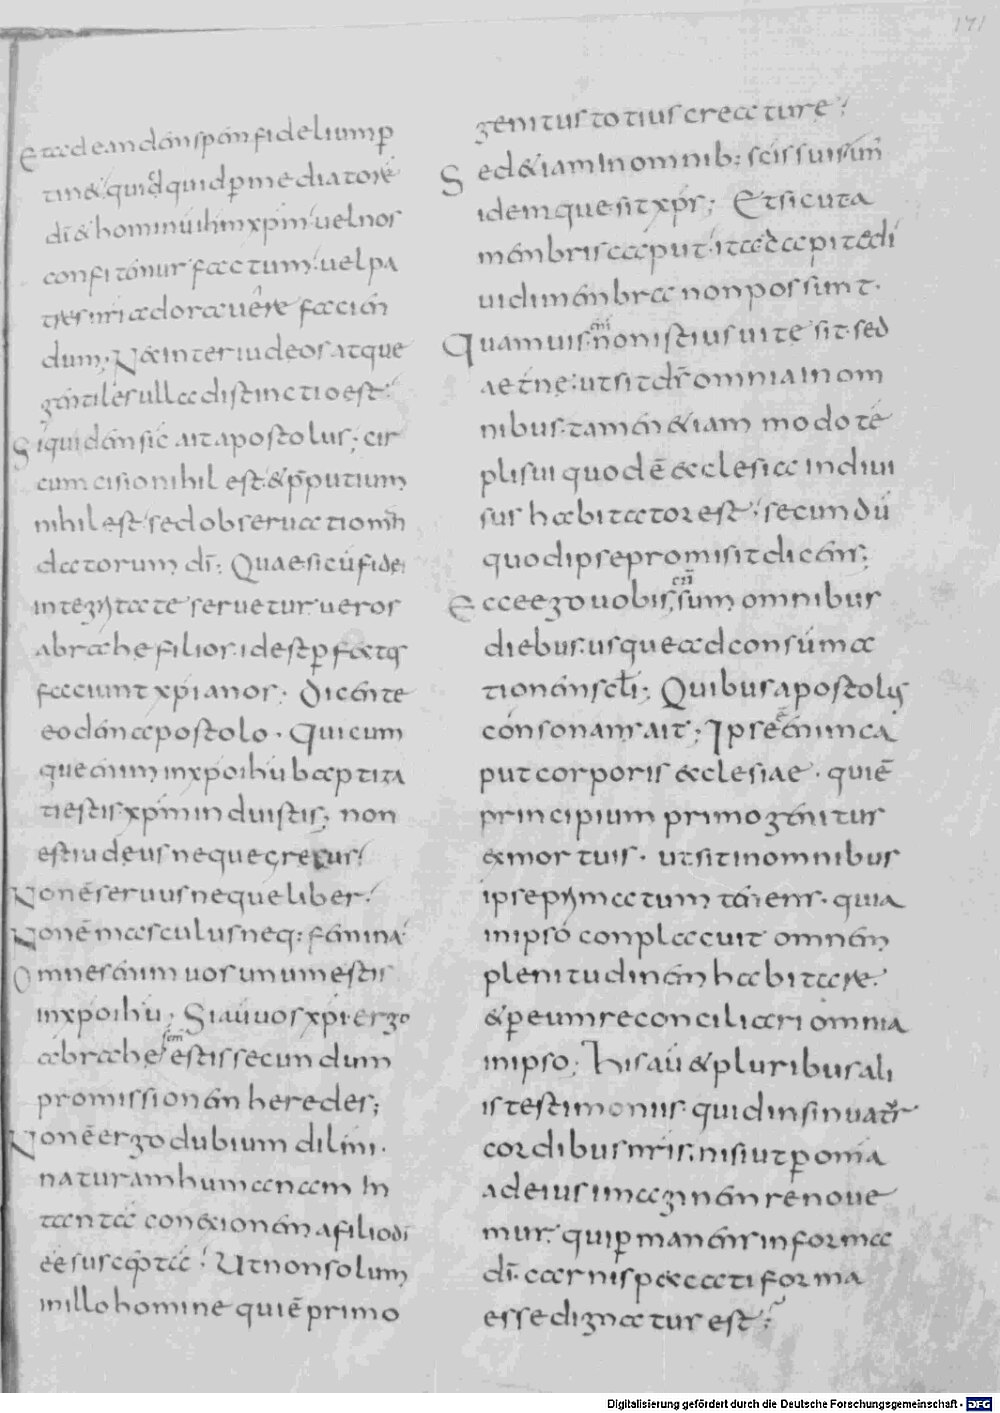 171
Et ad eandem spem fidelium p̄
tin& quidquid p̄ mediatore
dī & hominū ihm xp̄m uel nos
confitemur factum; uel pa
tres nri adorauer̄e facien
dum; N& inter iudeos atque
gentiles ulla distinctio est;
Siquidem sic ait apostolus; cir
cumcisio nihil est & p̄putium
nihil est sed obseruatio m̄
datorum dī; Quae si cū fidei
integritate seruetur ueros
abrahe filios. id est p̄fectos
faciunt xpianos; Dicente
eodem apostolo. Quicum
que enim in xpo ihu baptiza
ti estis xp̄m induistis; non
est iudeus neque grecus;
Non ē seruus neque liber;
Non ē masculus neq; femina
Omnes enim uos unum estis
in xpo ihu; Si aū uos xp̄i ergo
abrahe sem̄ estis secundum
promissionem heredes;
Non ē ergo dubium dilm̄i.
naturam humanam in
tantā conexionem a filio dī
ēē susceptā; Ut non solum
in illo homine qui ē primo
genitus totius creature;
Sed &iam in omnib; scis suis un̄
idemque sit xp̄s; Et sicut a
membris caput. ita a capite di
uidi membra non possunt.
Quamuis enī non istius uite sit. sed
aet̄ne; ut sit ds̄ omnia in om
nibus. tamen &iam modo tē
pli sui quod ē ecclesia indiui
sus habitator est; secundū
quod ipse promisit dicens;
Ecce ego uobiscum sum omnibus
diebus. usque ad consūma
tionem scl̄i; Quibus apostolus
consonans ait; Ipse ē enim ca
put corporis ecclesiae. qui ē
principium primogenitus
ex mortuis. ut sit in omnibus
ipse primatum tenens. quia
in ipso conplacuit omnem
plenitudinem habitare.
& p̄ eum reconciliari omnia
in ipso; His aū & pluribus ali
is testimoniis. quid insinuatr̄
cordibus nris. nisi ut p̄ omīa
ad eius imaginem renoue
mur. qui p̄manens in forma
dī. carnis peccati forma
esse dignatus est;
Digitalisierung gefördert durch die Deutsche Forschungsgemeinschaft - DFG